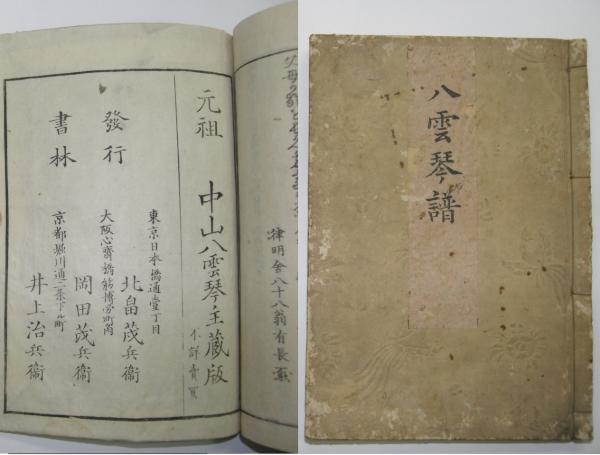 八雲琴譜
律明舎八十八翁有長系
元祖 中山八雲琴主蔵版
不許賣買
東京日本橋通壹丁目
北畠茂兵衞
發行
大阪心齋橋筋博労町角
岡田茂兵衞
書林
京都堀川通二条下ル町
井上治兵衞